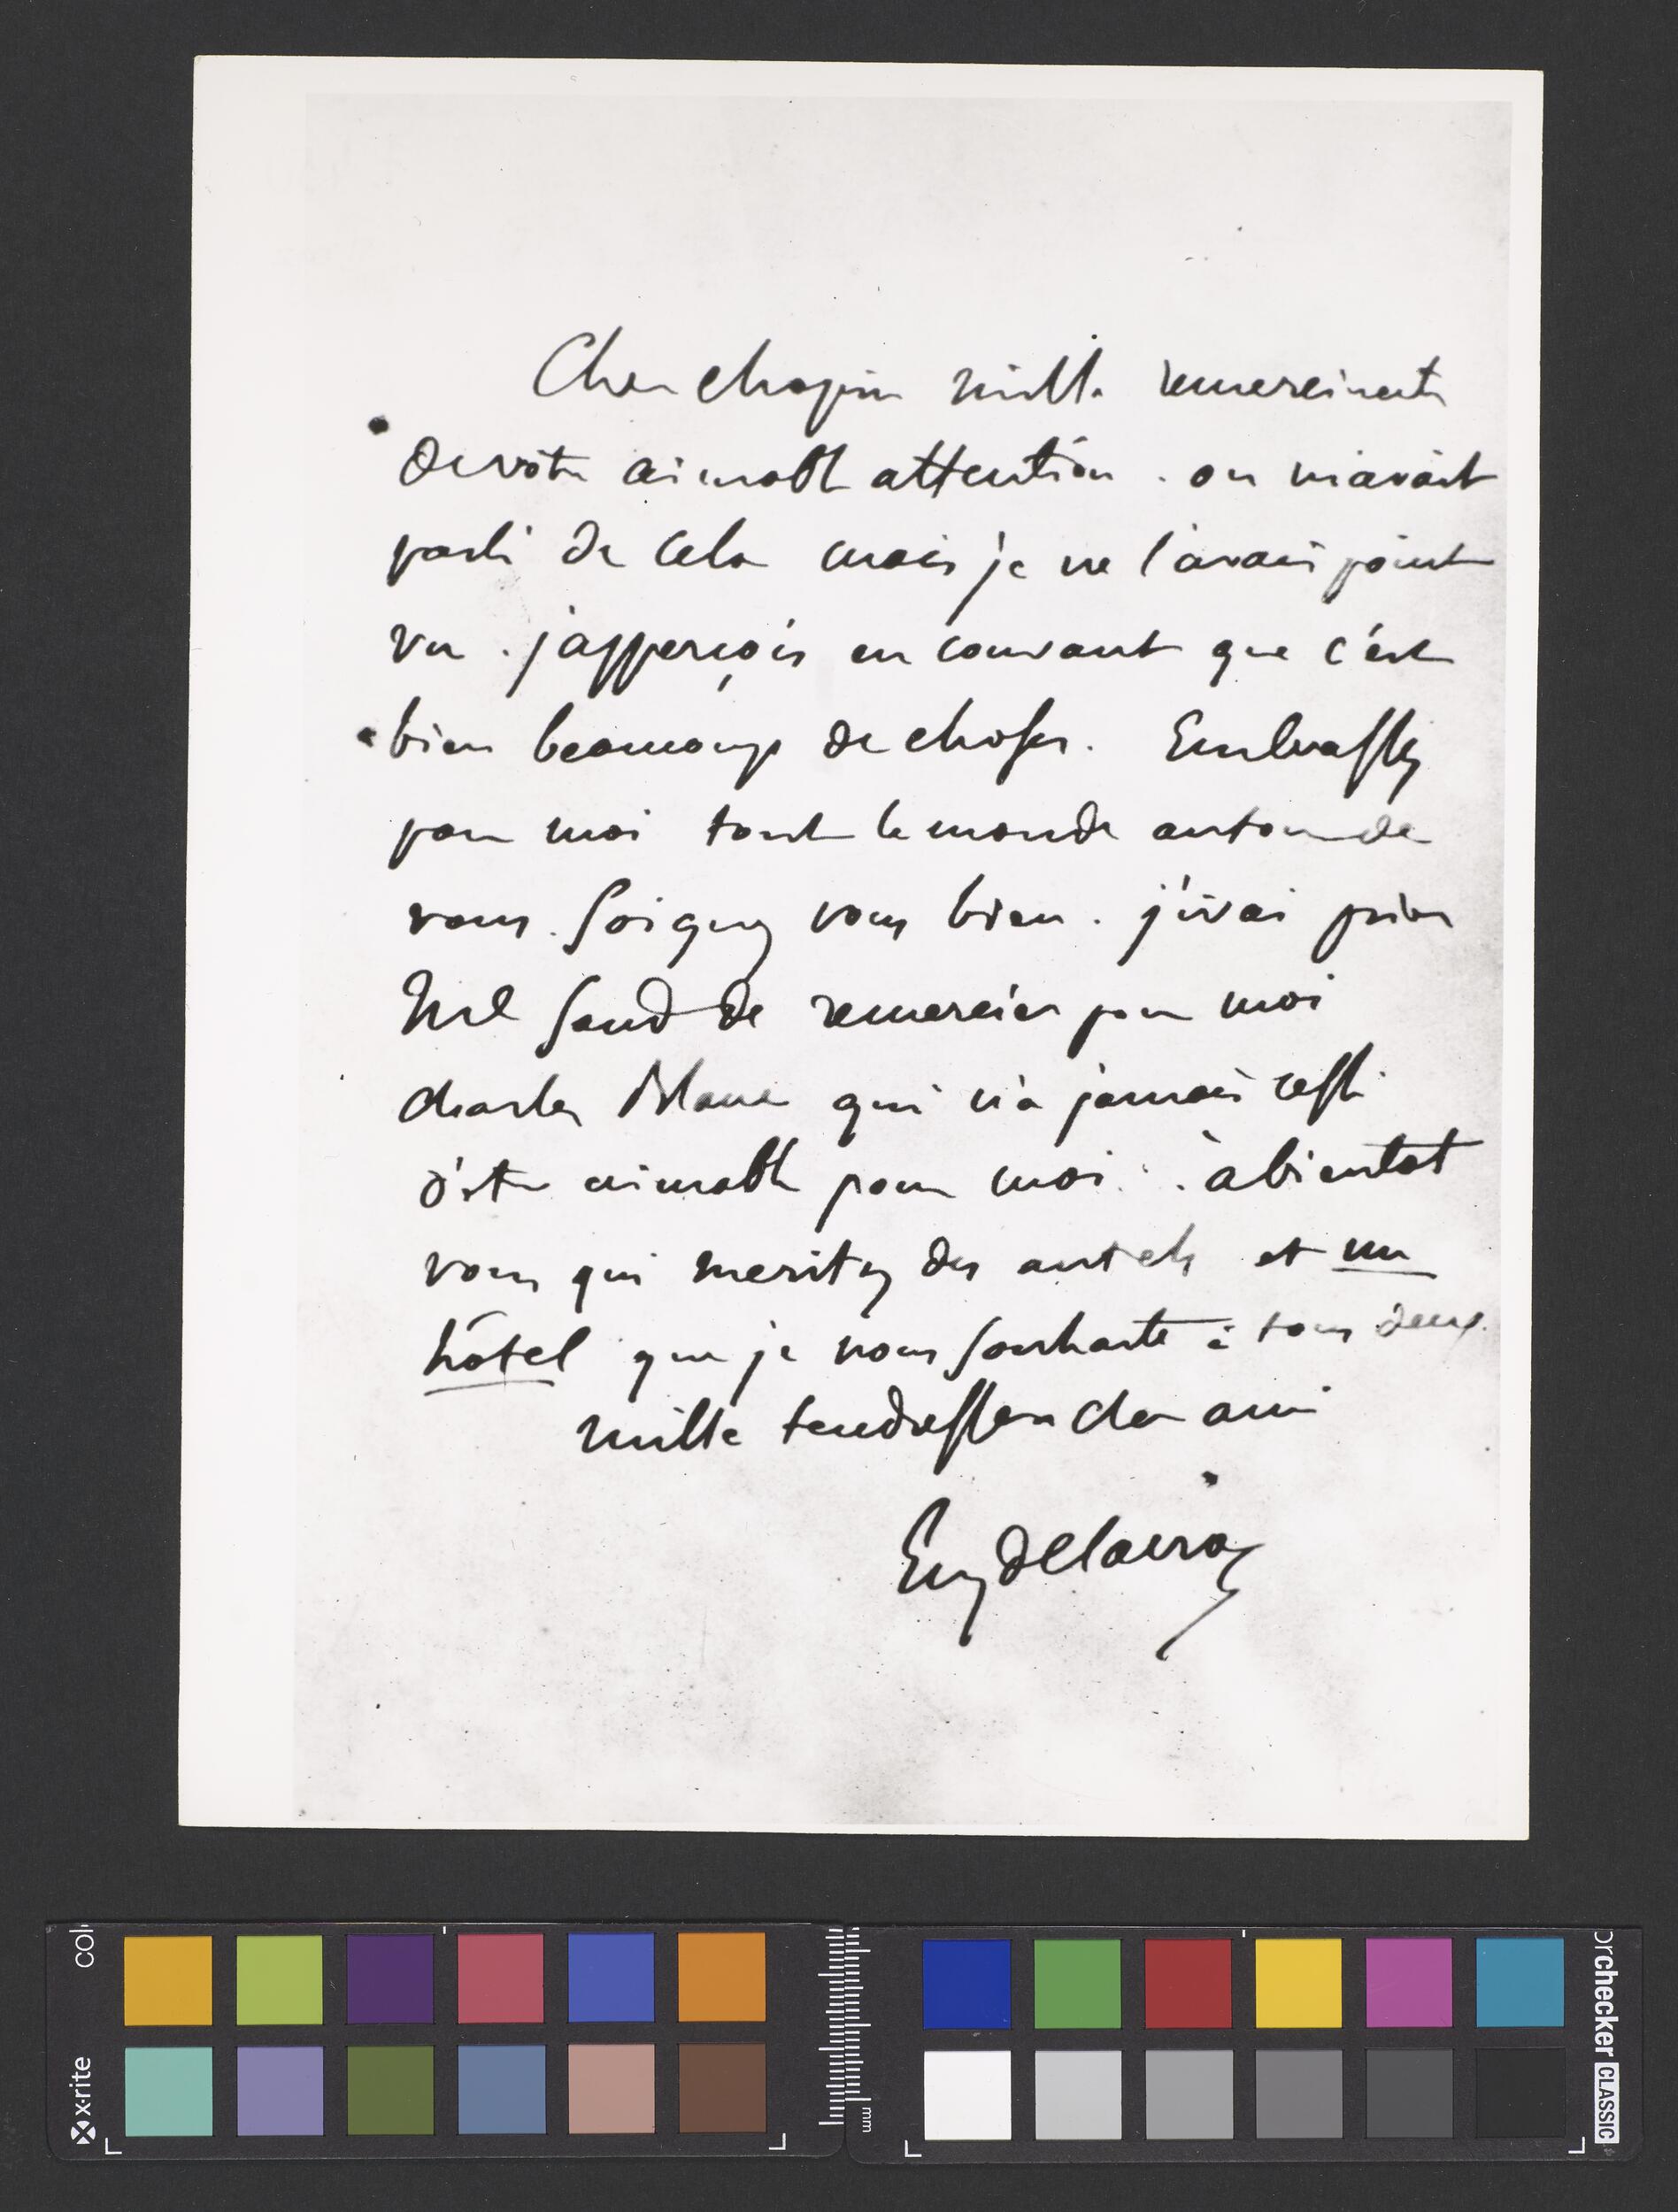 Cher chopin mille remerciments
de votre aimable attention. on m'avait
parlé de cela mais je ne l'avais point
vu. j'apperçois en courant que c'est
bien beaucoup de choses. Embrassez
pour moi tout le monde autour de
vous. Soignez vous bien. j'irai prier
Me Sand de remercier pour moi
charles Blanc qui n'a jamais cessé
d'etre aimable pour moi. à bientot
vous qui meritez des autels et un
hôtel que je vous souhaite à tous deux.
mille tendresses cher ami
Eug Delacroix
x·rite
col
mm
orchecker CLASSIC